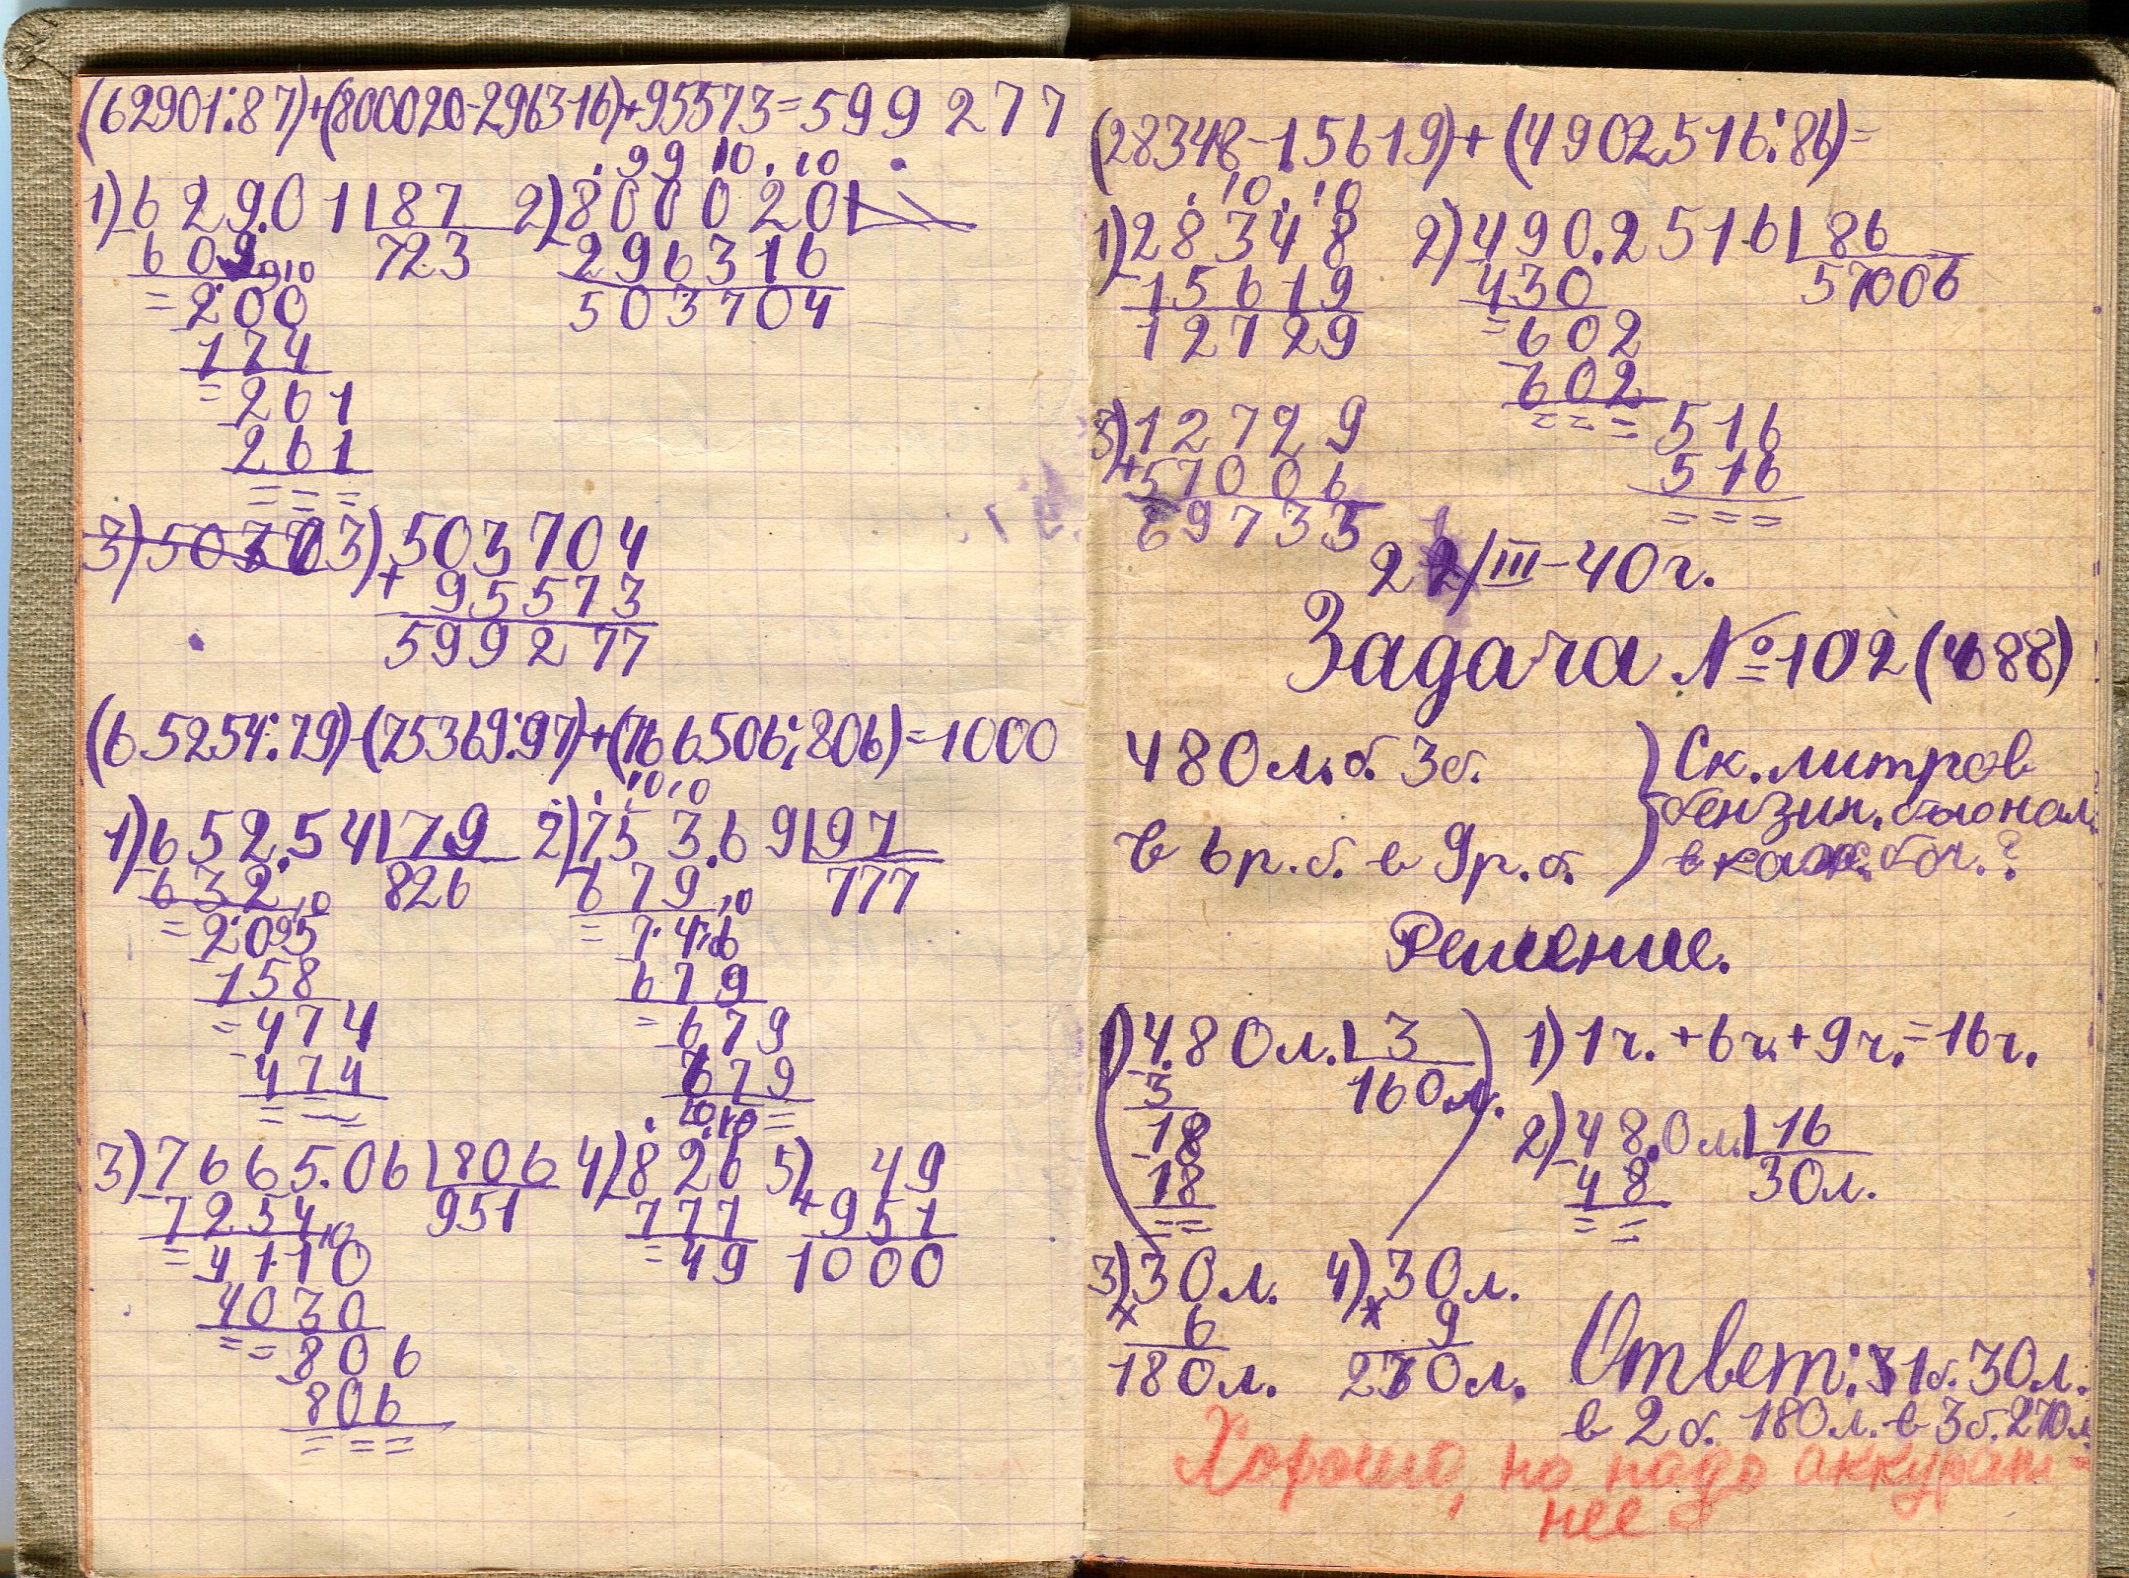 (62901:87)+(800020-296316)+95573=599277
1) 62901 | 87
609 723
=200
174
=261
261
===
2) 800020
296316
503704
3) 503703) 503704
+ 95573
599277
(65254:79)-(75369:97)+(766506:806)=1000
1) 65254 | 79
632 826
=205
158
=474
474
===
2) 75369 | 97
679 777
=746
679
=679
679
3) 766506 | 806
7254 951
=4110
4030
==806
806
===
4) 826
777
=49
5) 49
+951
1000
(28348-15619)+(4902516:86)=
1) 28348
15619
12729
2) 4902516 | 86
430 57006
=602
602
=== 516
516
===
3) 12729
+57006
69735
22/III-40г.
Задача №102 (688)
480 л. б. 3б.
в 6р. б. в 9р. б.
Ск. литров
бензин. было нал.
в каж. боч.?
Решение.
1) 480л. | 3
3 160л.
18
18
==
1) 1ч. + 6ч. + 9ч. = 16ч.
2) 480л. | 16
48 30л.
==
3) 30л.
× 6
180л.
4) 30л.
× 9
270л.
Ответ: 1б. 30л.
в 2б. 180л. в 3б. 270л.
Хорошо, но надо аккурат-
нее